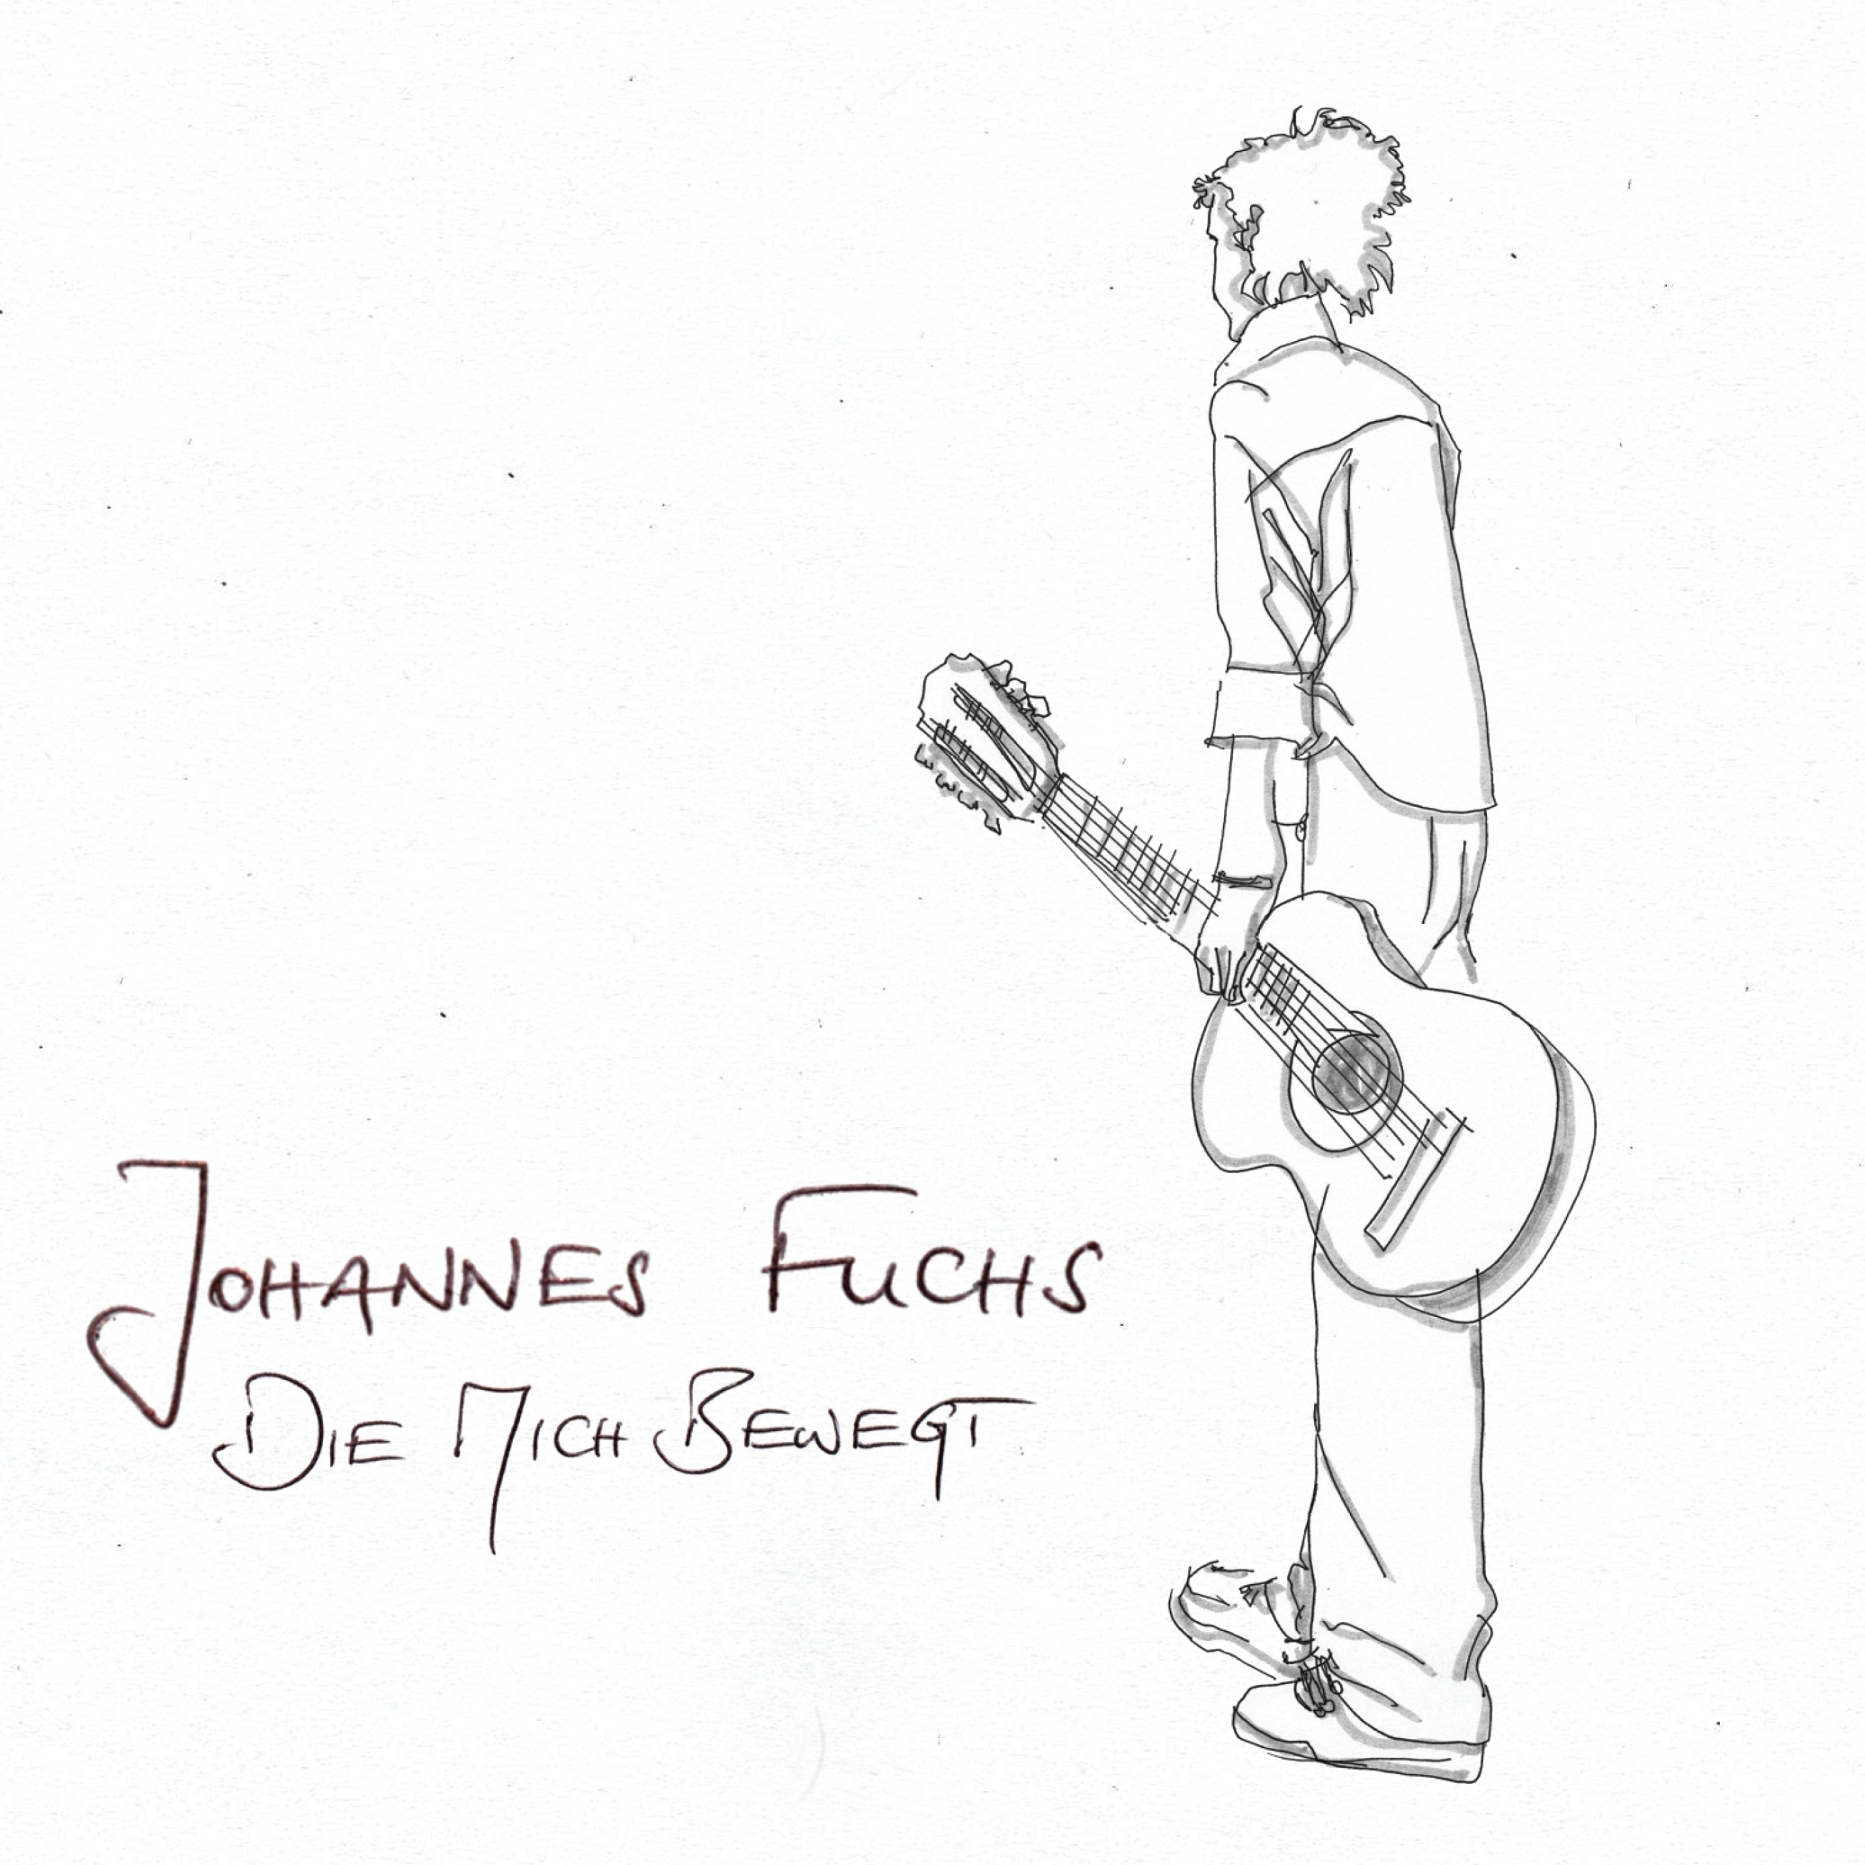 Johannes Fuchs
Die Mich Bewegt